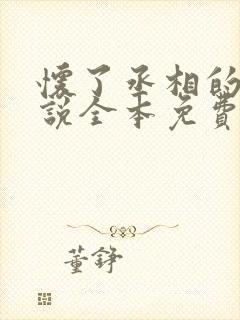 懷了丞相的
說全本免費
董錚